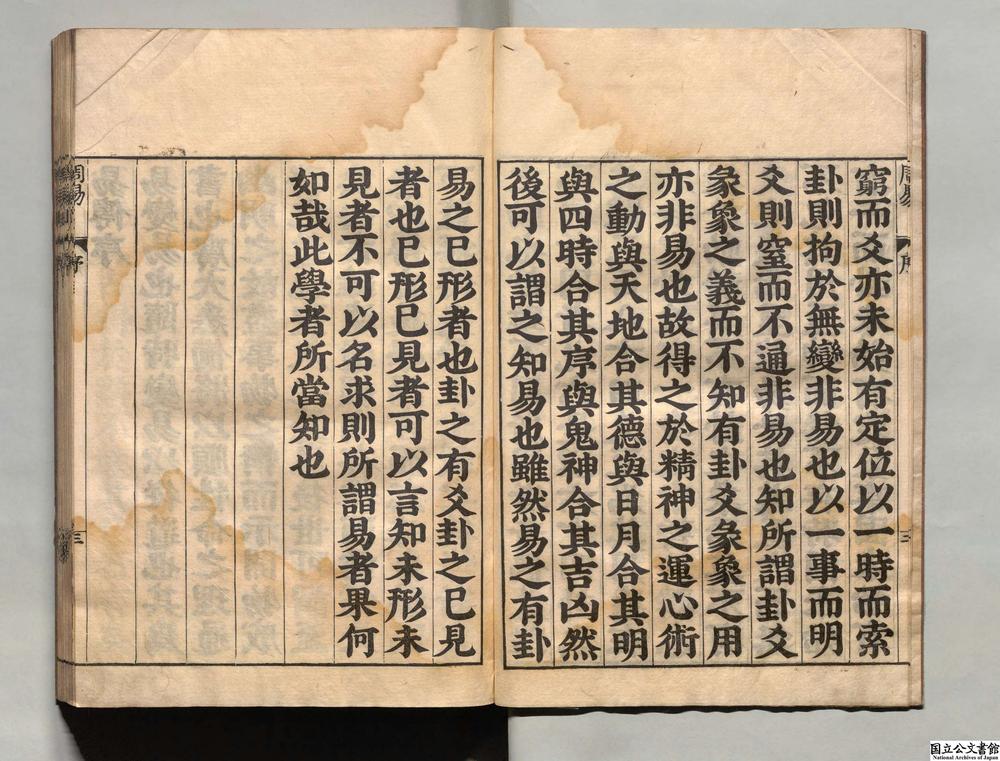 窮而爻亦未始有定位以一時而索
卦則拘於無變非易也以一事而明
爻則窒而不通非易也知所謂卦爻
彖象之義而不知有卦爻彖象之用
亦非易也故得之於精神之運心術
之動與天地合其德與日月合其明
與四時合其序與鬼神合其吉凶然
後可以謂之知易也雖然易之有卦
易之已形者也卦之有爻卦之已見
者也已形已見者可以言知未形未
見者不可以名求則所謂易者果何
如哉此學者所當知也
周易
序
三
国立公文書館
National Archives of Japan